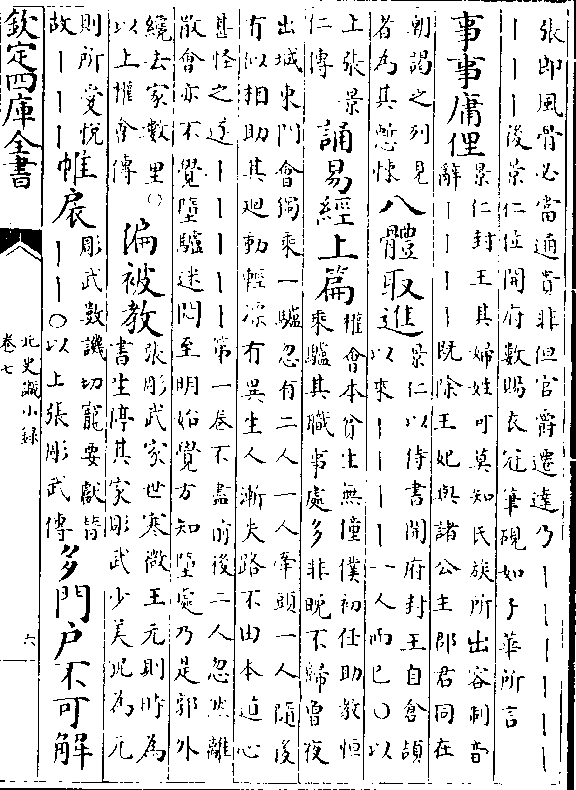 張即風骨必當通貴非但官爵遷達乃丨丨丨丨丨
丨丨丨丨後景仁位開府數賜衣冠筆硯如子華所言
事事庸俚
景仁封王其婦姓可莫知氏族所出容制音
辭丨丨丨丨既除王妃與諸公主郡君同在
朝謁之列見
者為其慙悚
八體取進
景仁以侍書開府封王自倉頡
以來丨丨丨丨一人而已〇以
上張景
仁傳
誦易經上篇
權會本貧生無僮僕初任助教恒
乘驢其職事處多非晚不歸曾夜
出城東門會獨乘一驢忽有二人一人牽頭一人隨後
有似相助其迴動輕漂有異生人漸失路不由本道心
甚怪之遂丨丨丨丨丨第一卷不盡前後二人忽然離
散會亦不覺墮驢迷悶至明始覺方知墮處乃是郭外
纔去家數里〇
以上權會傳
偏被教
張彫武家世寒微王元則時為
書生停其家彫武少美此為元
則所愛悅
故丨丨丨
帷扆
彫武數譏切寵要獻替
丨丨〇以上張彫武傳
多門户不可解
欽定四庫全書
北史識小錄
卷七
六